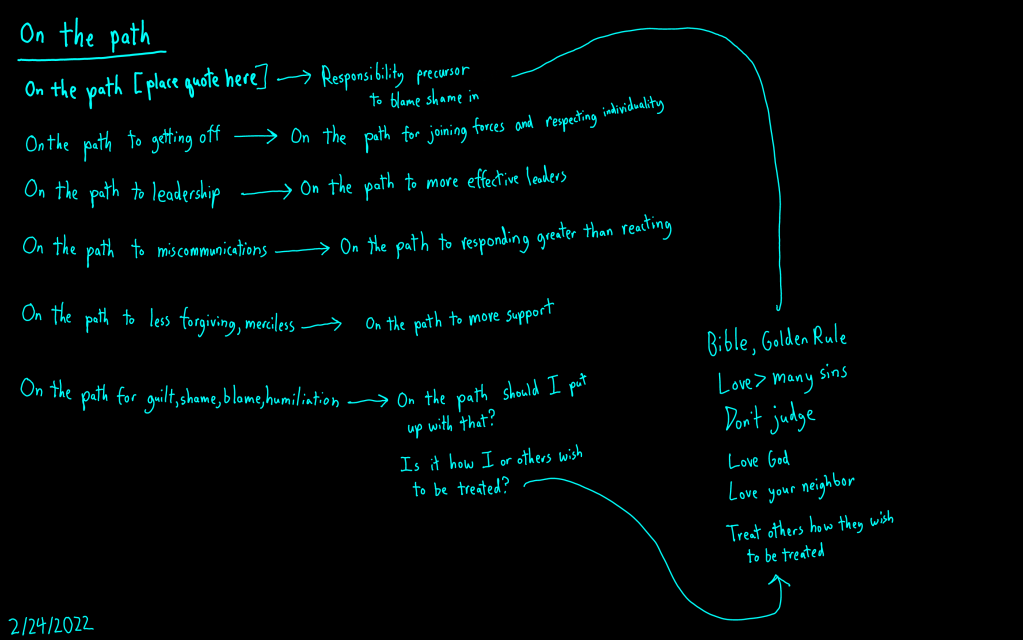 On the path
On the path [place quote here] → Responsibility precursor
to blame shame in
On the path to getting off → On the path for joining forces and respecting individuality
On the path to leadership → On the path to more effective leaders
On the path to miscommunications → On the path to responding greater than reacting
On the path to less forgiving, merciless → On the path to more support
On the path for guilt, shame, blame, humiliation → On the path should I put
up with that?
Is it how I or others wish
to be treated?
Bible, Golden Rule
Love > many sins
Don't judge
Love God
Love your neighbor
Treat others how they wish
to be treated
2/24/2022